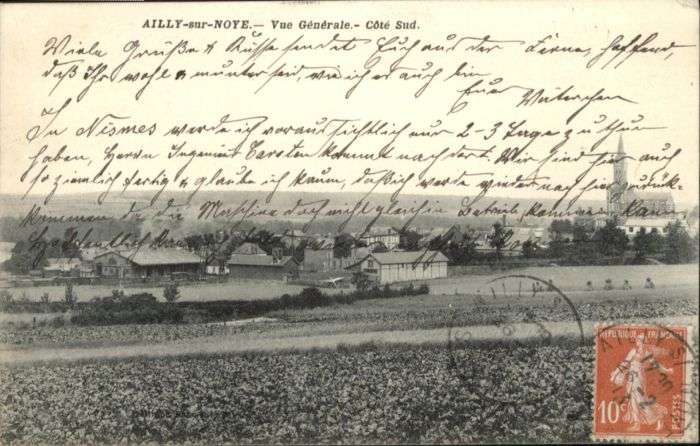 AILLY-sur-NOYE.— Vue Générale.- Côté Sud.
Viele Grüße & Küsse sendet Euch aus der Ferne, hoffend,
daß Ihr wohl & munter seid, wie ich es auch bin
Euer Väterchen
In Nesmes werde ich voraussichtlich nur 2-3 Tage zu thun
haben, Herrn Ingenieur Carsten kommt nach dort. Wir sind hier auch
so ziemlich fertig & glaube ich kaum, daß ich werde wieder nach hier zurück-
kommen da die Maschine doch nicht gleich in Betrieb kommen kann.
Hoffentlich
RÉPUBLIQUE FRANÇAISE
10c
POSTES